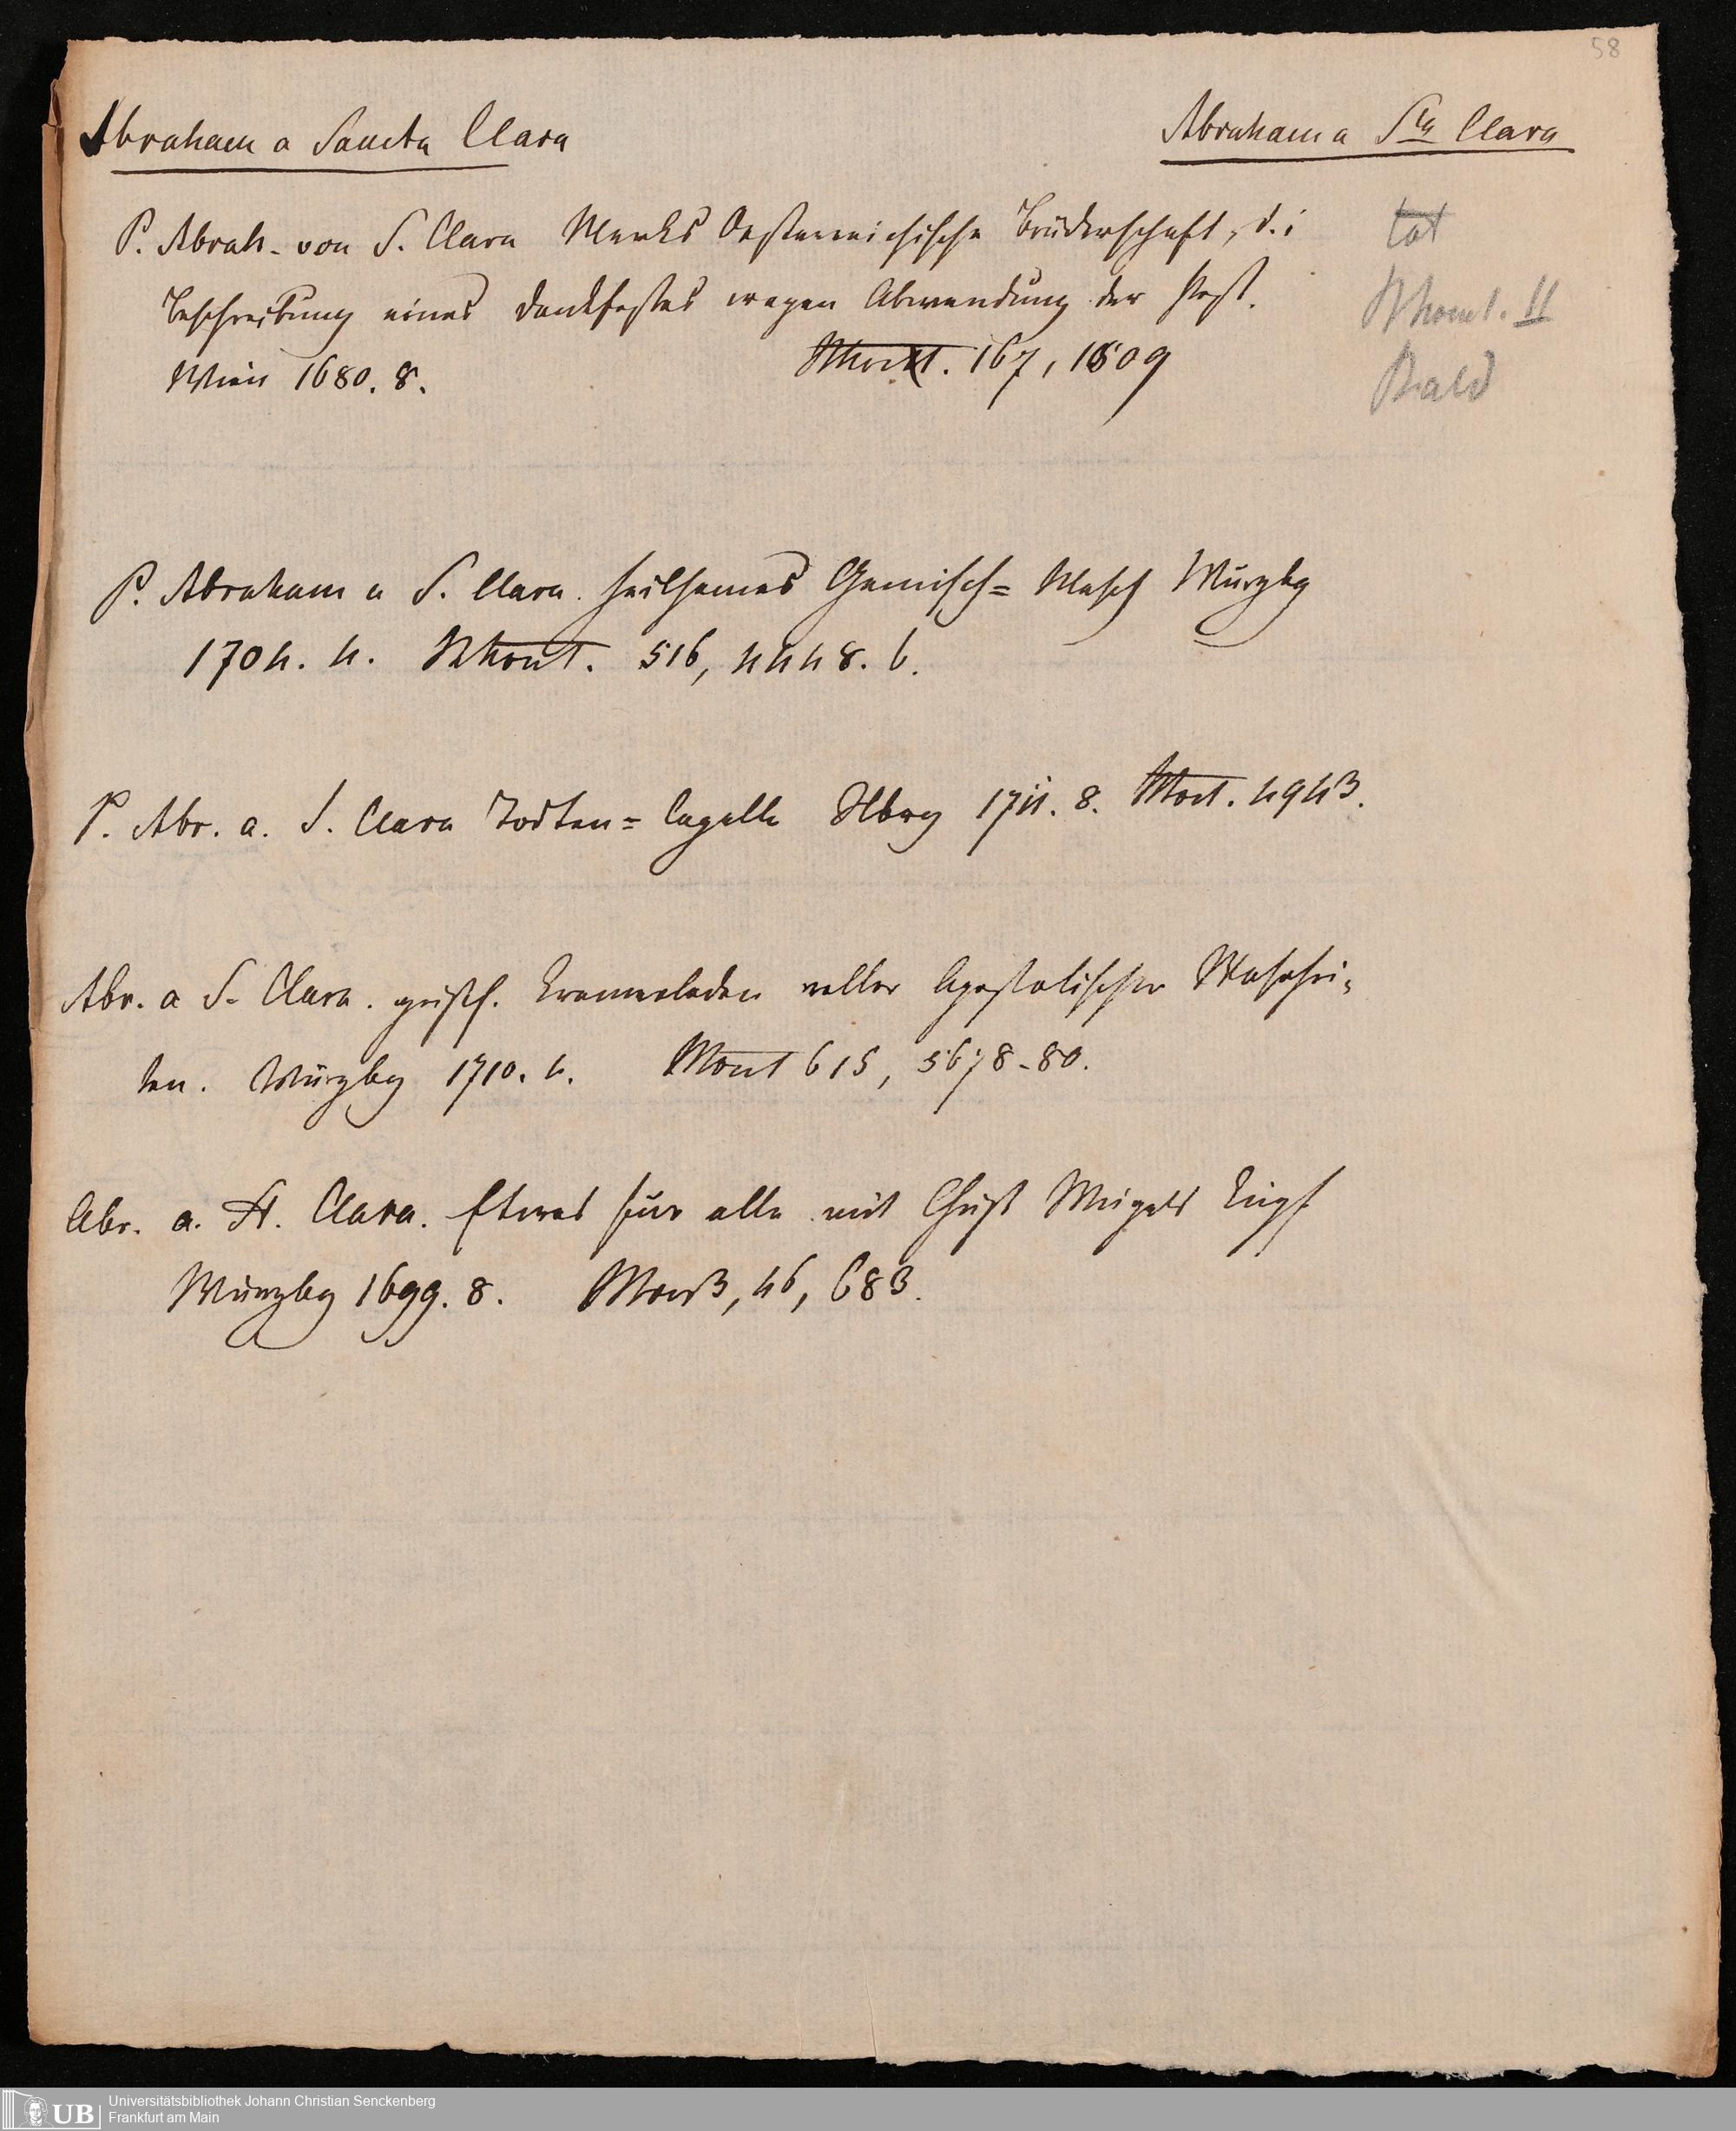 58
Abraham a Sancta Clara
Abraham a Sta Clara
P. Abrah. von S. Clara Merks Oesterreichische Brüderschaft, d. i
Beschreibung eines Dankfestes wegen Abwendung der Pest.
Wien 1680. 8. 167, 1509
cat
II
Bald
P. Abraham a S. Clara. heilsames Gemisch= Masch Würzbg
1704. 4. 516, 4448. b.
P. Abr. a. S. Clara Todten= Capelle Nbrg 1711. 8. 4943.
Abr. a S. Clara. geistl. Kramerladen voller Apostolischer Wahrhei-
ten. Würzbg 1710. 4. 615, 5678-80.
Abr. a. St. Clara. Etwas für alle mit Christ Weigels Kupf
Würzbg 1699. 8. 46, 683.
UB
Universitätsbibliothek Johann Christian Senckenberg
Frankfurt am Main